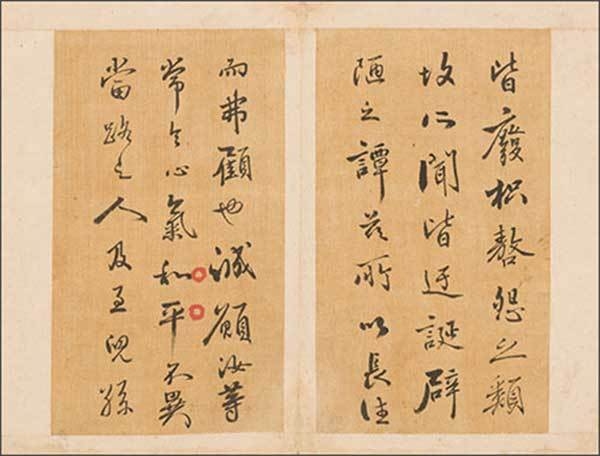 皆癈怨之類
故所聞皆迂誕辟
陋之譚茲所以長往
而弗顧也誠願汝等
常令心氣和平不異
當路之人及至兒孫